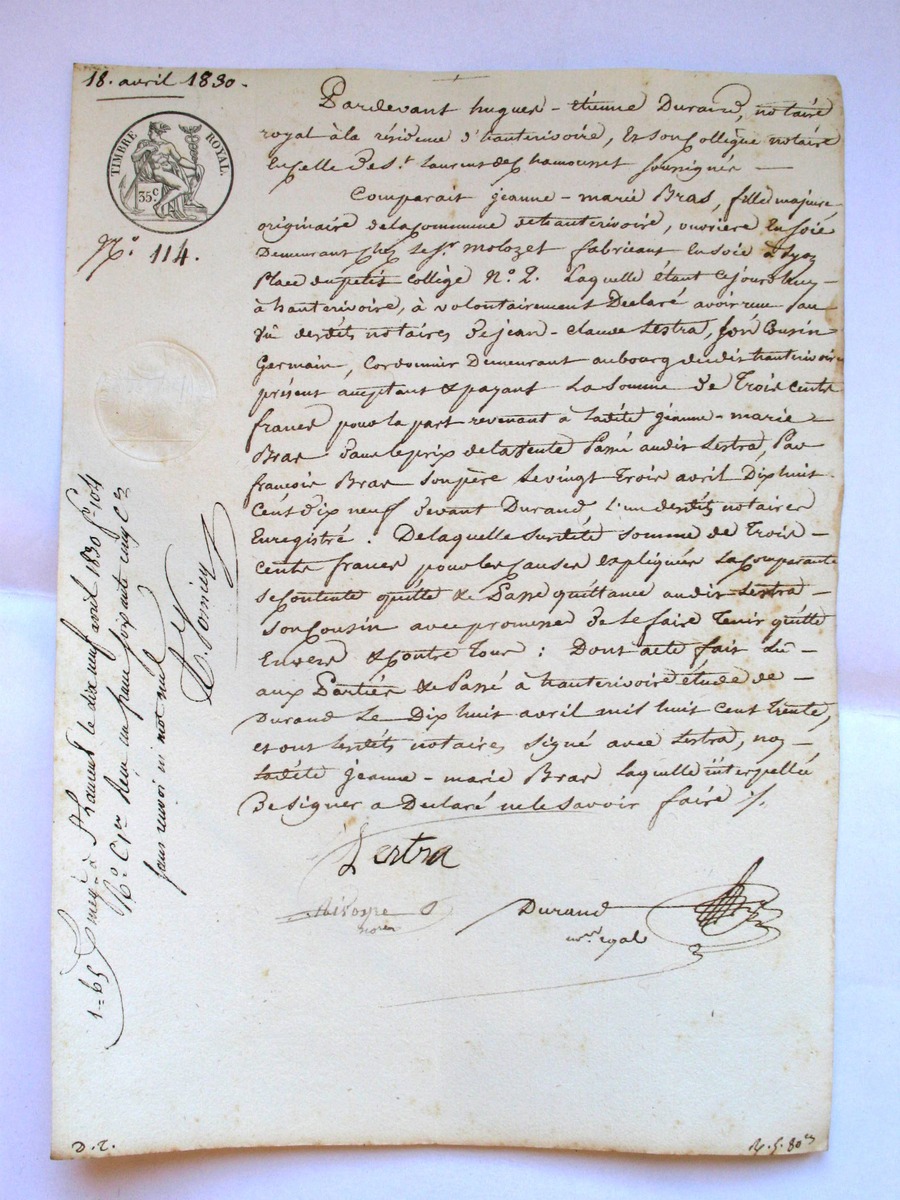 18. avril 1830.
TIMBRE ROYAL.
35c
N.o 114.
Pardevant hugues - étienne Durand, notaire
royal à la résidence d'hauterivoire, et son collègue notaire
en celle de St. laurent de chamousset soussignés —
Comparait jeanne - marie Bras, fille majeure
originaire de la commune de hauterivoire, ouvrière en soie
Demeurant chez le Sr. molozet fabricant en soie à Lyon
place du petit collège N.o 2. Laquelle étant cejourd'huy -
à hauterivoire, à volontairement Déclaré avoir reçu au
vû desdits notaires de jean - claude Lestra, son Cousin
Germain, Cordonnier Demeurant au bourg dudit hauterivoire
présent acceptant & payant La Somme de Trois cents
francs pour la part revenant à ladite jeanne - marie
Bras dans le prix de la vente Passé audit Lestra, Par
françois Bras son père le vingt trois avril Dix huit
cent dix neuf devant Durand l'un desdits notaires
Enregistré. De laquelle susdite somme de trois -
cents francs pour les causes expliquées la comparante
se contente quitte & Passe quittance audit Lestra -
son Cousin avec promesse de le faire tenir quitte
Envers & contre tous : Dont acte fait lû -
aux Parties & Passé à hauterivoire étude de -
Durand Le Dix huit avril mil huit cent trente,
et ont lesdits notaires signé avec Lestra, non -
ladite jeanne - marie Bras laquelle interpellée
De signer a Déclaré ne le savoir faire ./.
Lestra
Durand
nre. royal
à St. Laurent le dix neuf avril 1830 fo. 104
Ro. C 1re. Reçu un franc soixante cinq ces
sans renvoi ni mot nul
1=65
D. T.